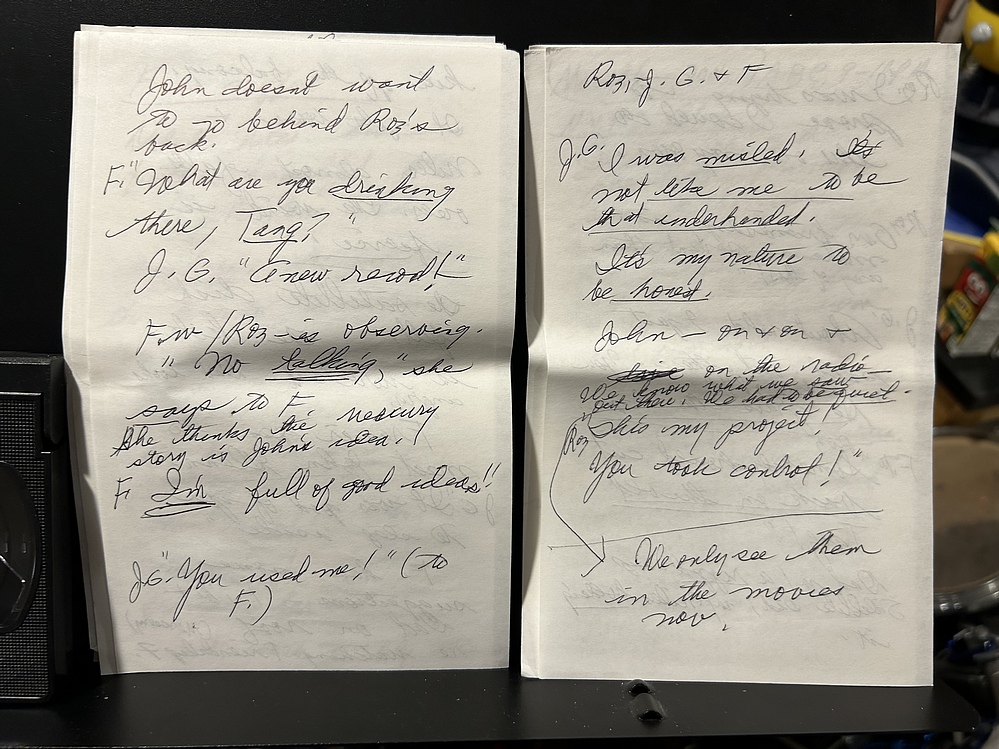 John doesn't want
to go behind Roz's
back.
F. "What are you drinking
there, Tang?"
J.G. "A new record!"
F.w/Roz - is observing.
"No talking," she
says to F.
She thinks the mercury
story is John's idea.
F. I'm full of good ideas!!
J.G. "You used me!" (to
F.)
Roz, J.G. & F
J.G. I was misled. It's
not like me to be
that underhanded.
It's my nature to
be honest.
John — on & on &
on the radio —
We know what we saw
out there. We had to be quiet.
Roz
It's my project!
You took control!"
We only see them
in the movies
now.